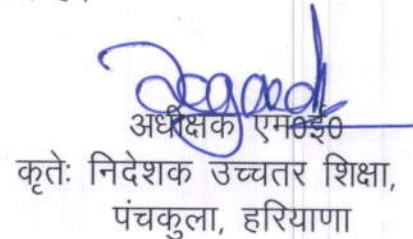 अधीक्षक एम०ई०
कृतेः निदेशक उच्चतर शिक्षा,
पंचकुला, हरियाणा